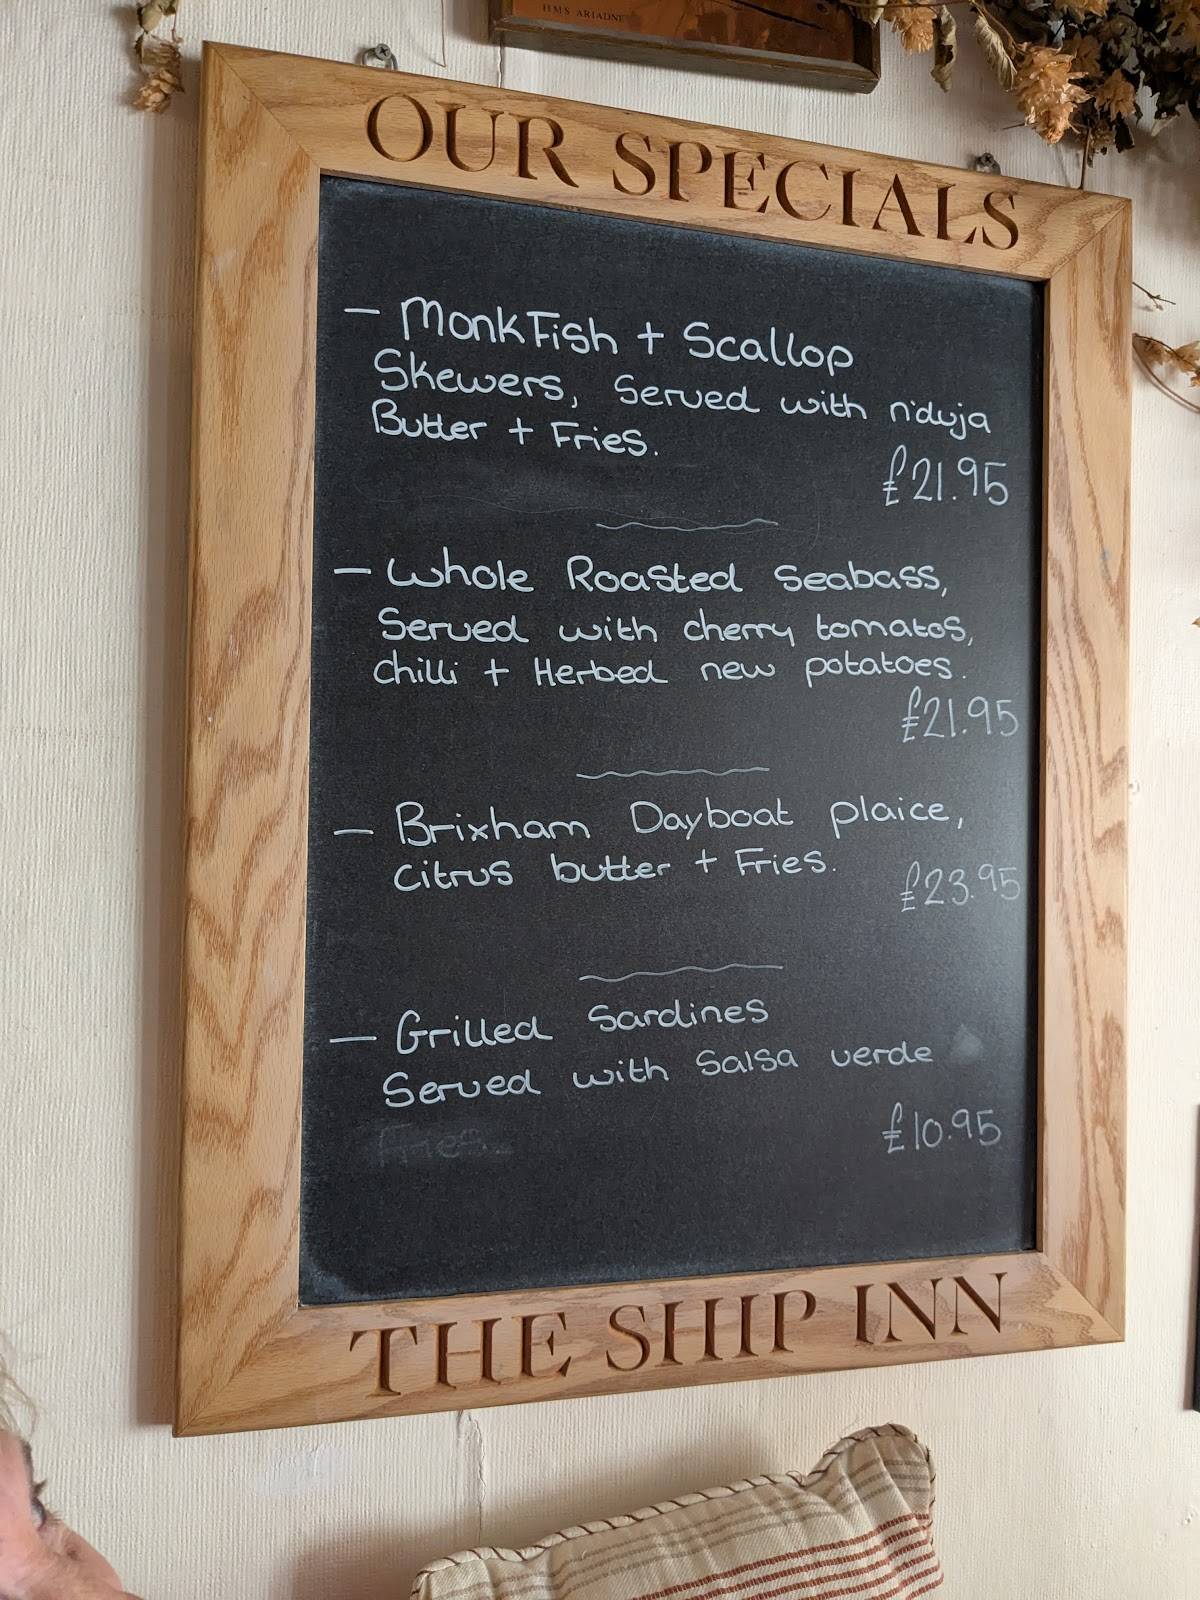 HMS ARIADNE
OUR SPECIALS
- MonkFish + Scallop
Skewers, Served with n'duja
Butter + Fries.
£21.95
- Whole Roasted Seabass,
Served with cherry tomatos,
chilli + Herbed new potatoes.
£21.95
- Brixham Dayboat plaice,
citrus butter + Fries.
£23.95
- Grilled Sardines
Served with Salsa verde
£10.95
Fries.
THE SHIP INN